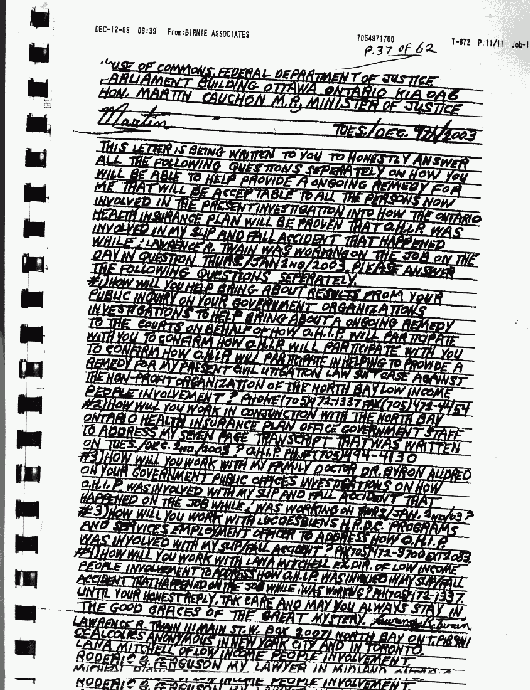 DEC-12-03 09:33 From:BIRNIE ASSOCIATES 7054971760 T-672 P.11/11 Job-1
P.37 OF 62
USE OF COMMONS, FEDERAL DEPARTMENT OF JUSTICE
PARLIAMENT BUILDING OTTAWA ONTARIO K1A 0A6
HON. MARTIN CAUCHON M.P., MINISTER OF JUSTICE
Martin
TUES./DEC. 9TH/2003
THIS LETTER IS BEING WRITTEN TO YOU TO HONESTLY ANSWER
ALL THE FOLLOWING QUESTIONS SEPERATELY ON HOW YOU
WILL BE ABLE TO HELP PROVIDE A ONGOING REMEDY FOR
ME THAT WILL BE ACCEPTABLE TO ALL THE PERSONS NOW
INVOLVED IN THE PRESENT INVESTIGATION INTO HOW THE ONTARIO
HEALTH INSURANCE PLAN WILL BE PROVEN THAT O.H.I.P. WAS
INVOLVED IN MY SLIP AND FALL ACCIDENT THAT HAPPENED
WHILE I LAWRENCE R. TWAIN WAS WORKING ON THE JOB ON THE
DAY IN QUESTION THURS/JAN 2ND/2003. PLEASE ANSWER
THE FOLLOWING QUESTIONS SEPERATELY.
#1) HOW WILL YOU HELP BRING ABOUT RESULTS FROM YOUR
PUBLIC INQUIRY ON YOUR GOVERNMENT ORGANIZATIONS
INVESTIGATIONS TO HELP BRING ABOUT A ONGOING REMEDY
TO THE COURTS ON BEHALF OF HOW O.H.I.P. WILL PARTICIPATE
WITH YOU TO CONFIRM HOW O.H.I.P. WILL PARTICIPATE WITH YOU
TO CONFIRM HOW O.H.I.P. WILL PARTICIPATE IN HELPING TO PROVIDE A
REMEDY FOR MY PRESENT CIVIL LITIGATION LAW SUIT CASE AGAINST
THE NON PROFIT ORGANIZATION OF THE NORTH BAY LOW INCOME
PEOPLE INVOLVEMENT? PHONE (705) 472-1337 FAX (705) 472-4454
#2) HOW WILL YOU WORK IN CONJUNCTION WITH THE NORTH BAY
ONTARIO HEALTH INSURANCE PLAN OFFICE GOVERNMENT STAFF
TO ADDRESS MY SEVEN PAGE TRANSCRIPT THAT WAS WRITTEN
ON TUES./DEC. 2ND/2003? O.H.I.P. PH.# (705) 494-4130
#3) HOW WILL YOU WORK WITH MY FAMILY DOCTOR DR. BYRON ALDRED
ON YOUR GOVERNMENT PUBLIC OFFICES INVESTIGATIONS ON HOW
O.H.I.P. WAS INVOLVED WITH MY SLIP AND FALL ACCIDENT THAT
HAPPENED ON THE JOB WHILE I WAS WORKING ON THURS/JAN. 2ND/03?
#3) HOW WILL YOU WORK WITH H.P.D.C. PROGRAMS
AND SERVICES EMPLOYMENT OFFICER TO ADDRESS HOW O.H.I.P.
WAS INVOLVED WITH MY SLIP/FALL ACCIDENT? PH.705)472-3700 EXT
#4) HOW WILL YOU WORK WITH LANA MITCHELL EX. DIR. OF LOW INCOME
PEOPLE INVOLVEMENT TO ADDRESS HOW O.H.I.P. WAS INVOLVED IN MY SLIP/FALL
ACCIDENT THAT HAPPENED ON THE JOB WHILE I WAS WORKING? PH.(705)472-1337.
UNTIL YOUR HONEST REPLY, TAKE CARE AND MAY YOU ALWAYS STAY IN
THE GOOD GRACES OF THE GREAT MYSTERY. Lawrence R. Twain
LAWRENCE R. TWAIN 111 MAIN ST. W. BOX 20071 NORTH BAY ONT.
ALCOLICS ANONYMOUS IN NEW YORK CITY AND IN TORONTO.
LANA MITCHELL OF LOW INCOME PEOPLE INVOLVEMENT.
RODERIC G. FERGUSON MY LAWYER IN MIDLAND
INCOME PEOPLE INVOLVEMENT
RODERIC G. FERGUSON